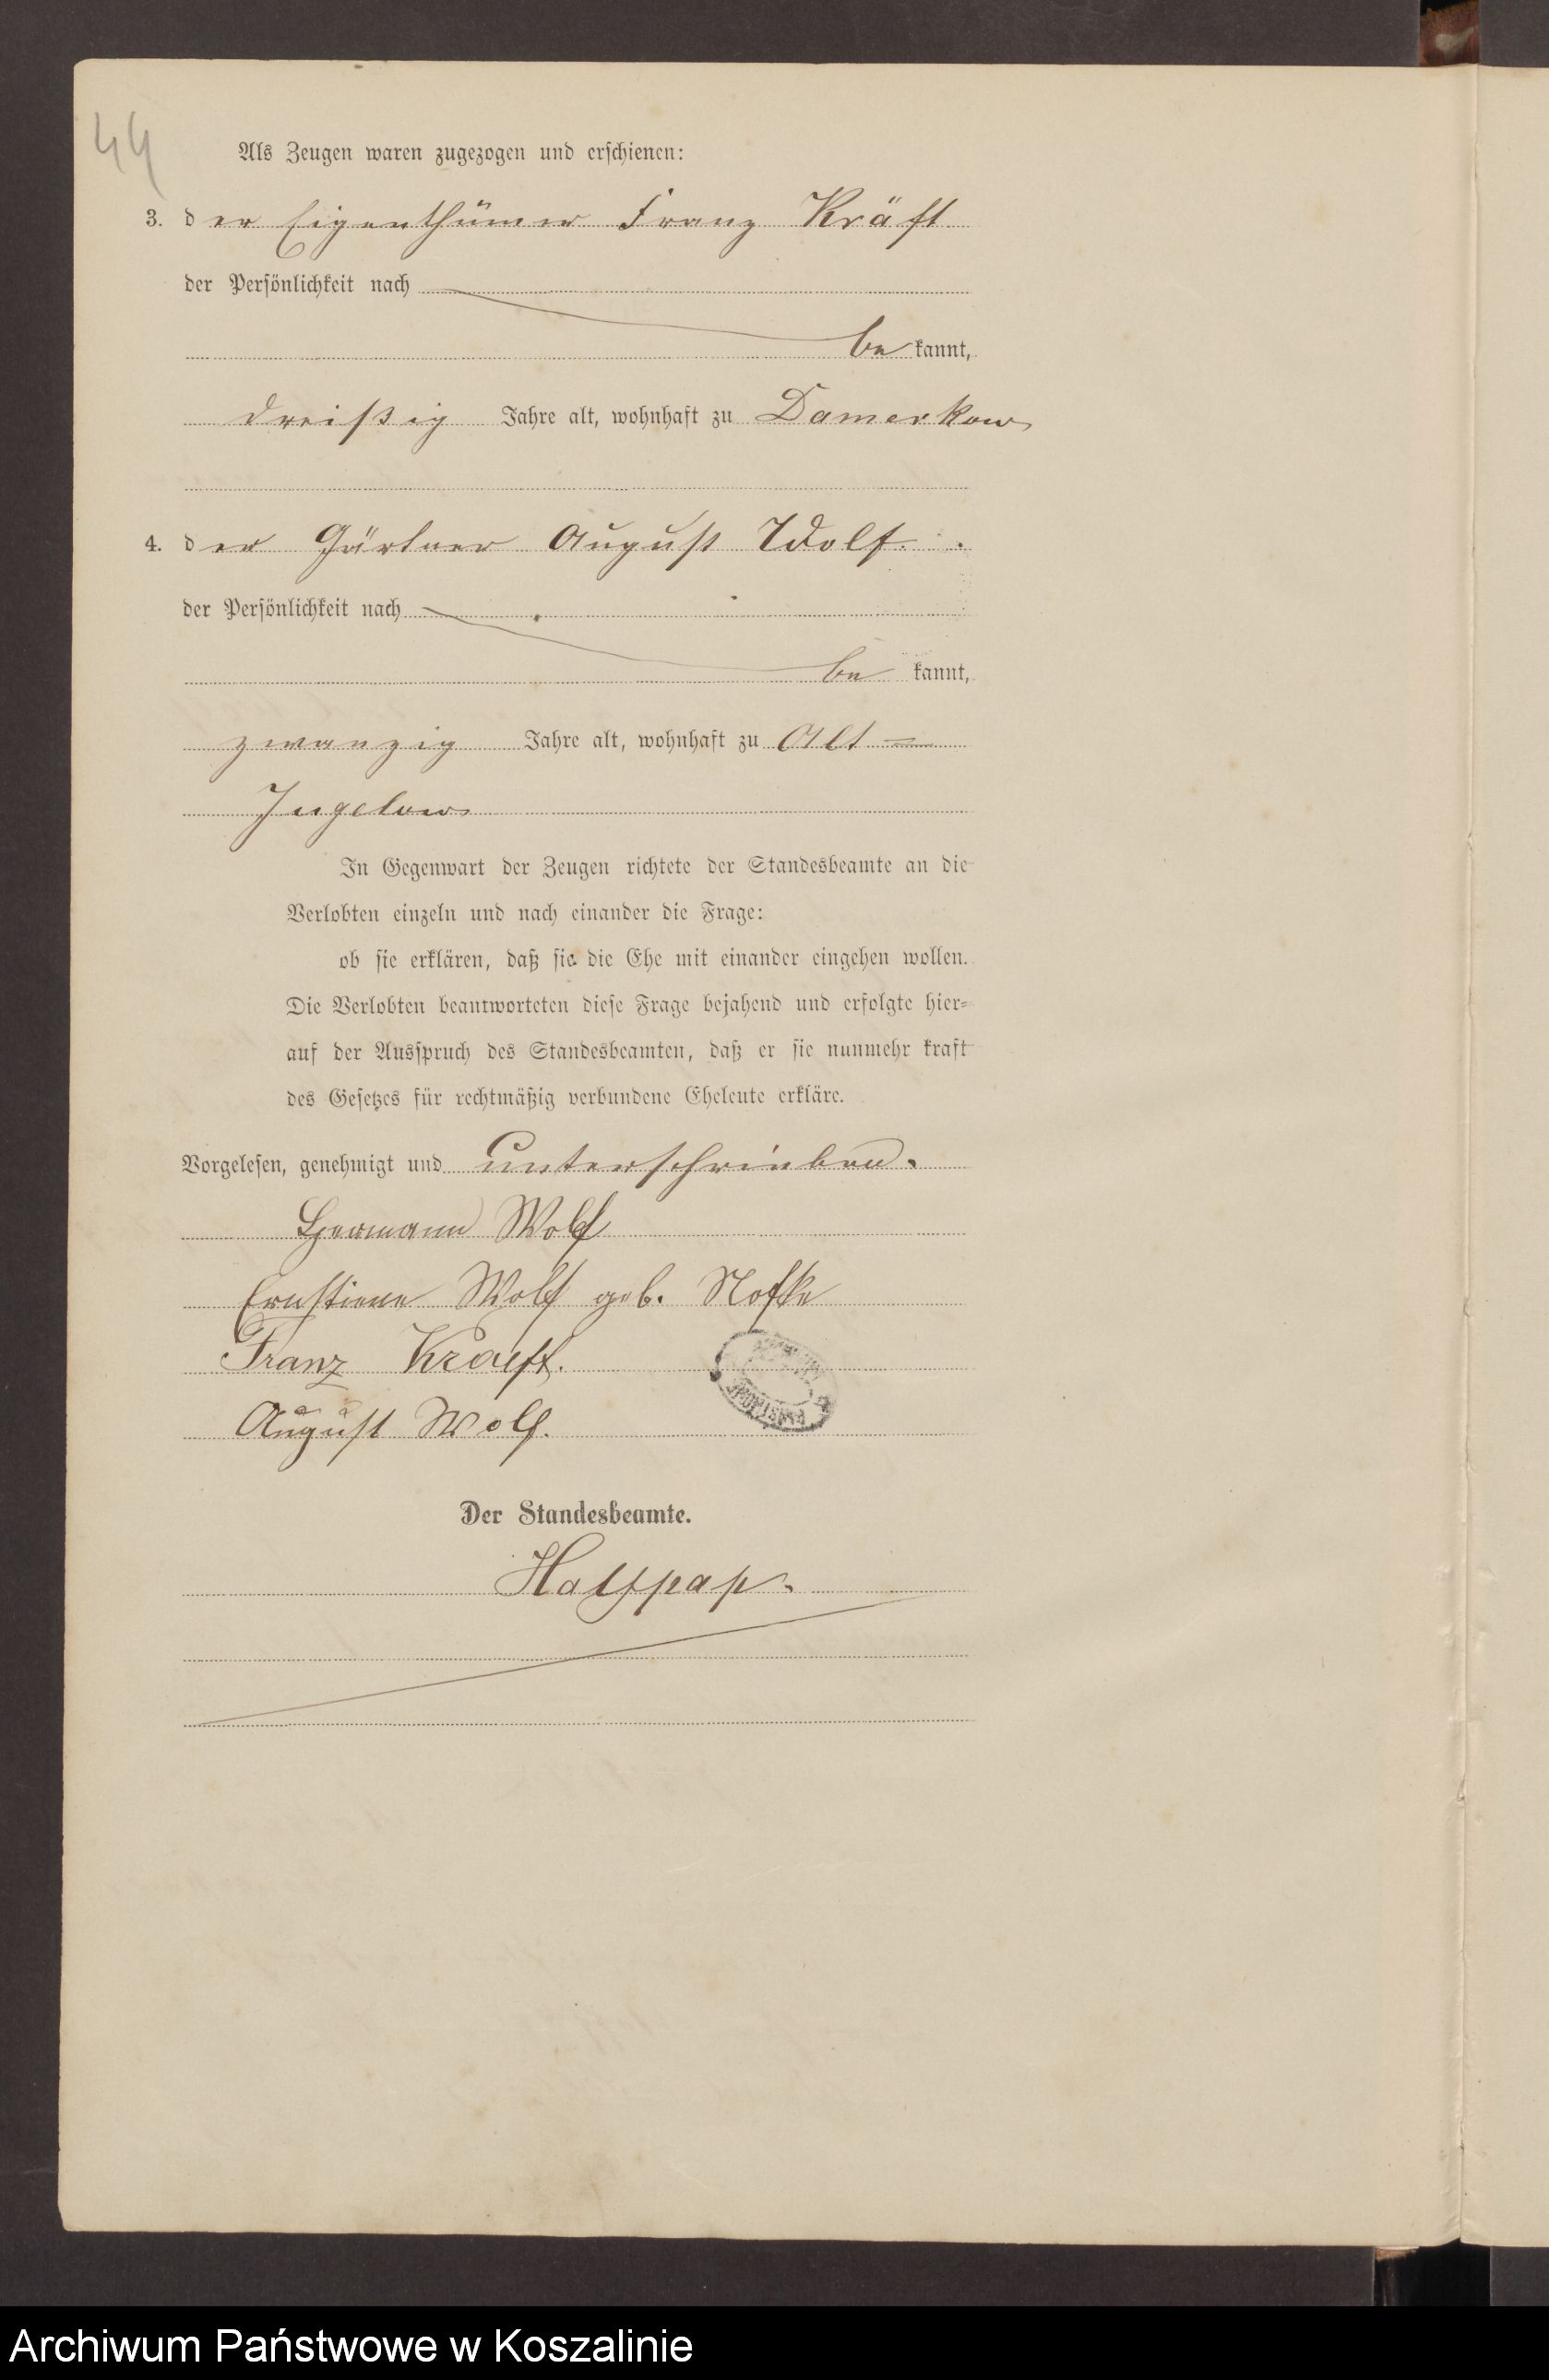 44
Als Zeugen waren zugezogen und erschienen:
3. der Eigenthümer Franz Kräft
der Persönlichkeit nach
be kannt,
dreißig Jahre alt, wohnhaft zu Damerkow
4. der Gärtner August Wolf.
der Persönlichkeit nach
be kannt,
zwanzig Jahre alt, wohnhaft zu Alt-
Jugelow
In Gegenwart der Zeugen richtete der Standesbeamte an die
Verlobten einzeln und nach einander die Frage:
ob sie erklären, daß sie die Ehe mit einander eingehen wollen.
Die Verlobten beantworteten diese Frage bejahend und erfolgte hier-
auf der Ausspruch des Standesbeamten, daß er sie nunmehr kraft
des Gesetzes für rechtmäßig verbundene Eheleute erkläre.
Vorgelesen, genehmigt und unterschrieben.
Hermann Wolf
Ernstiene Wolf geb. Nofke
Franz Kraeft.
August Wolf.
Der Standesbeamte.
Halfpap.
Archiwum Państwowe w Koszalinie